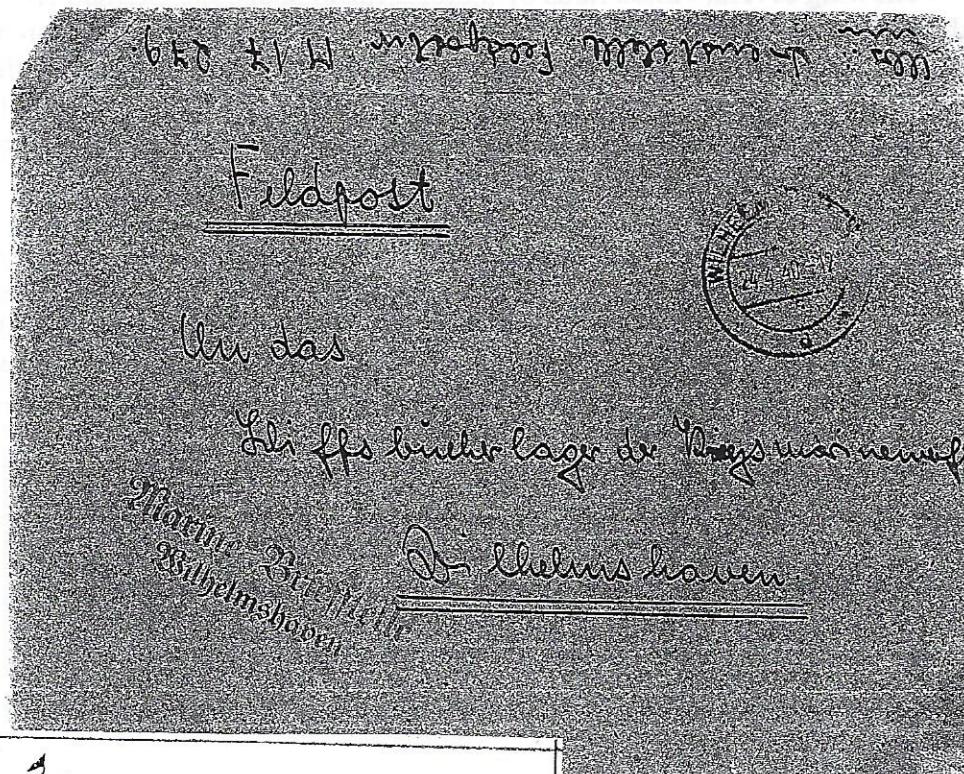 Abs. Dienststelle Feldpostnr. M 17 279.
Feldpost
An das
Schiffsbücherlager der Kriegsmarinewerft
Wilhelmshaven.
WILHELM
24.4.40 12
a
Marine-Briefstelle
Wilhelmshaven